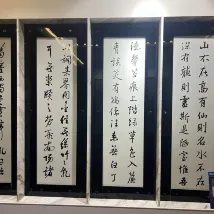 山不在高有仙則名水不在
深有龍則靈斯是陋室惟吾
德馨苔痕上階綠草色入簾
青談笑有鴻儒往來無白丁
調素琴閱金經無絲竹之亂
耳無案牘之勞形南陽諸